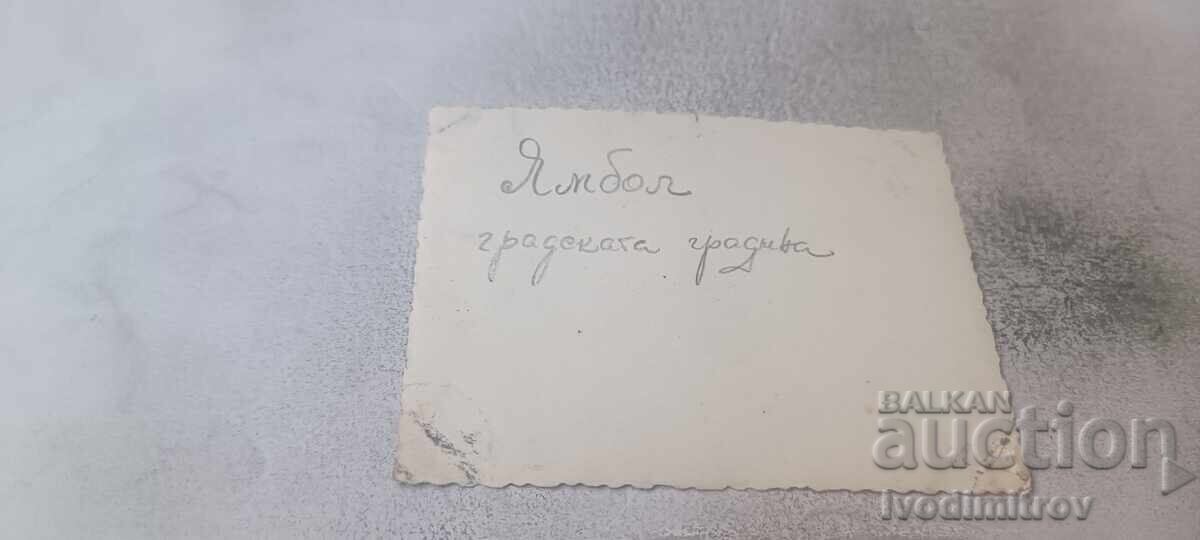 Ямбол
градската градина
BALKAN
auction
Ivodimitrov